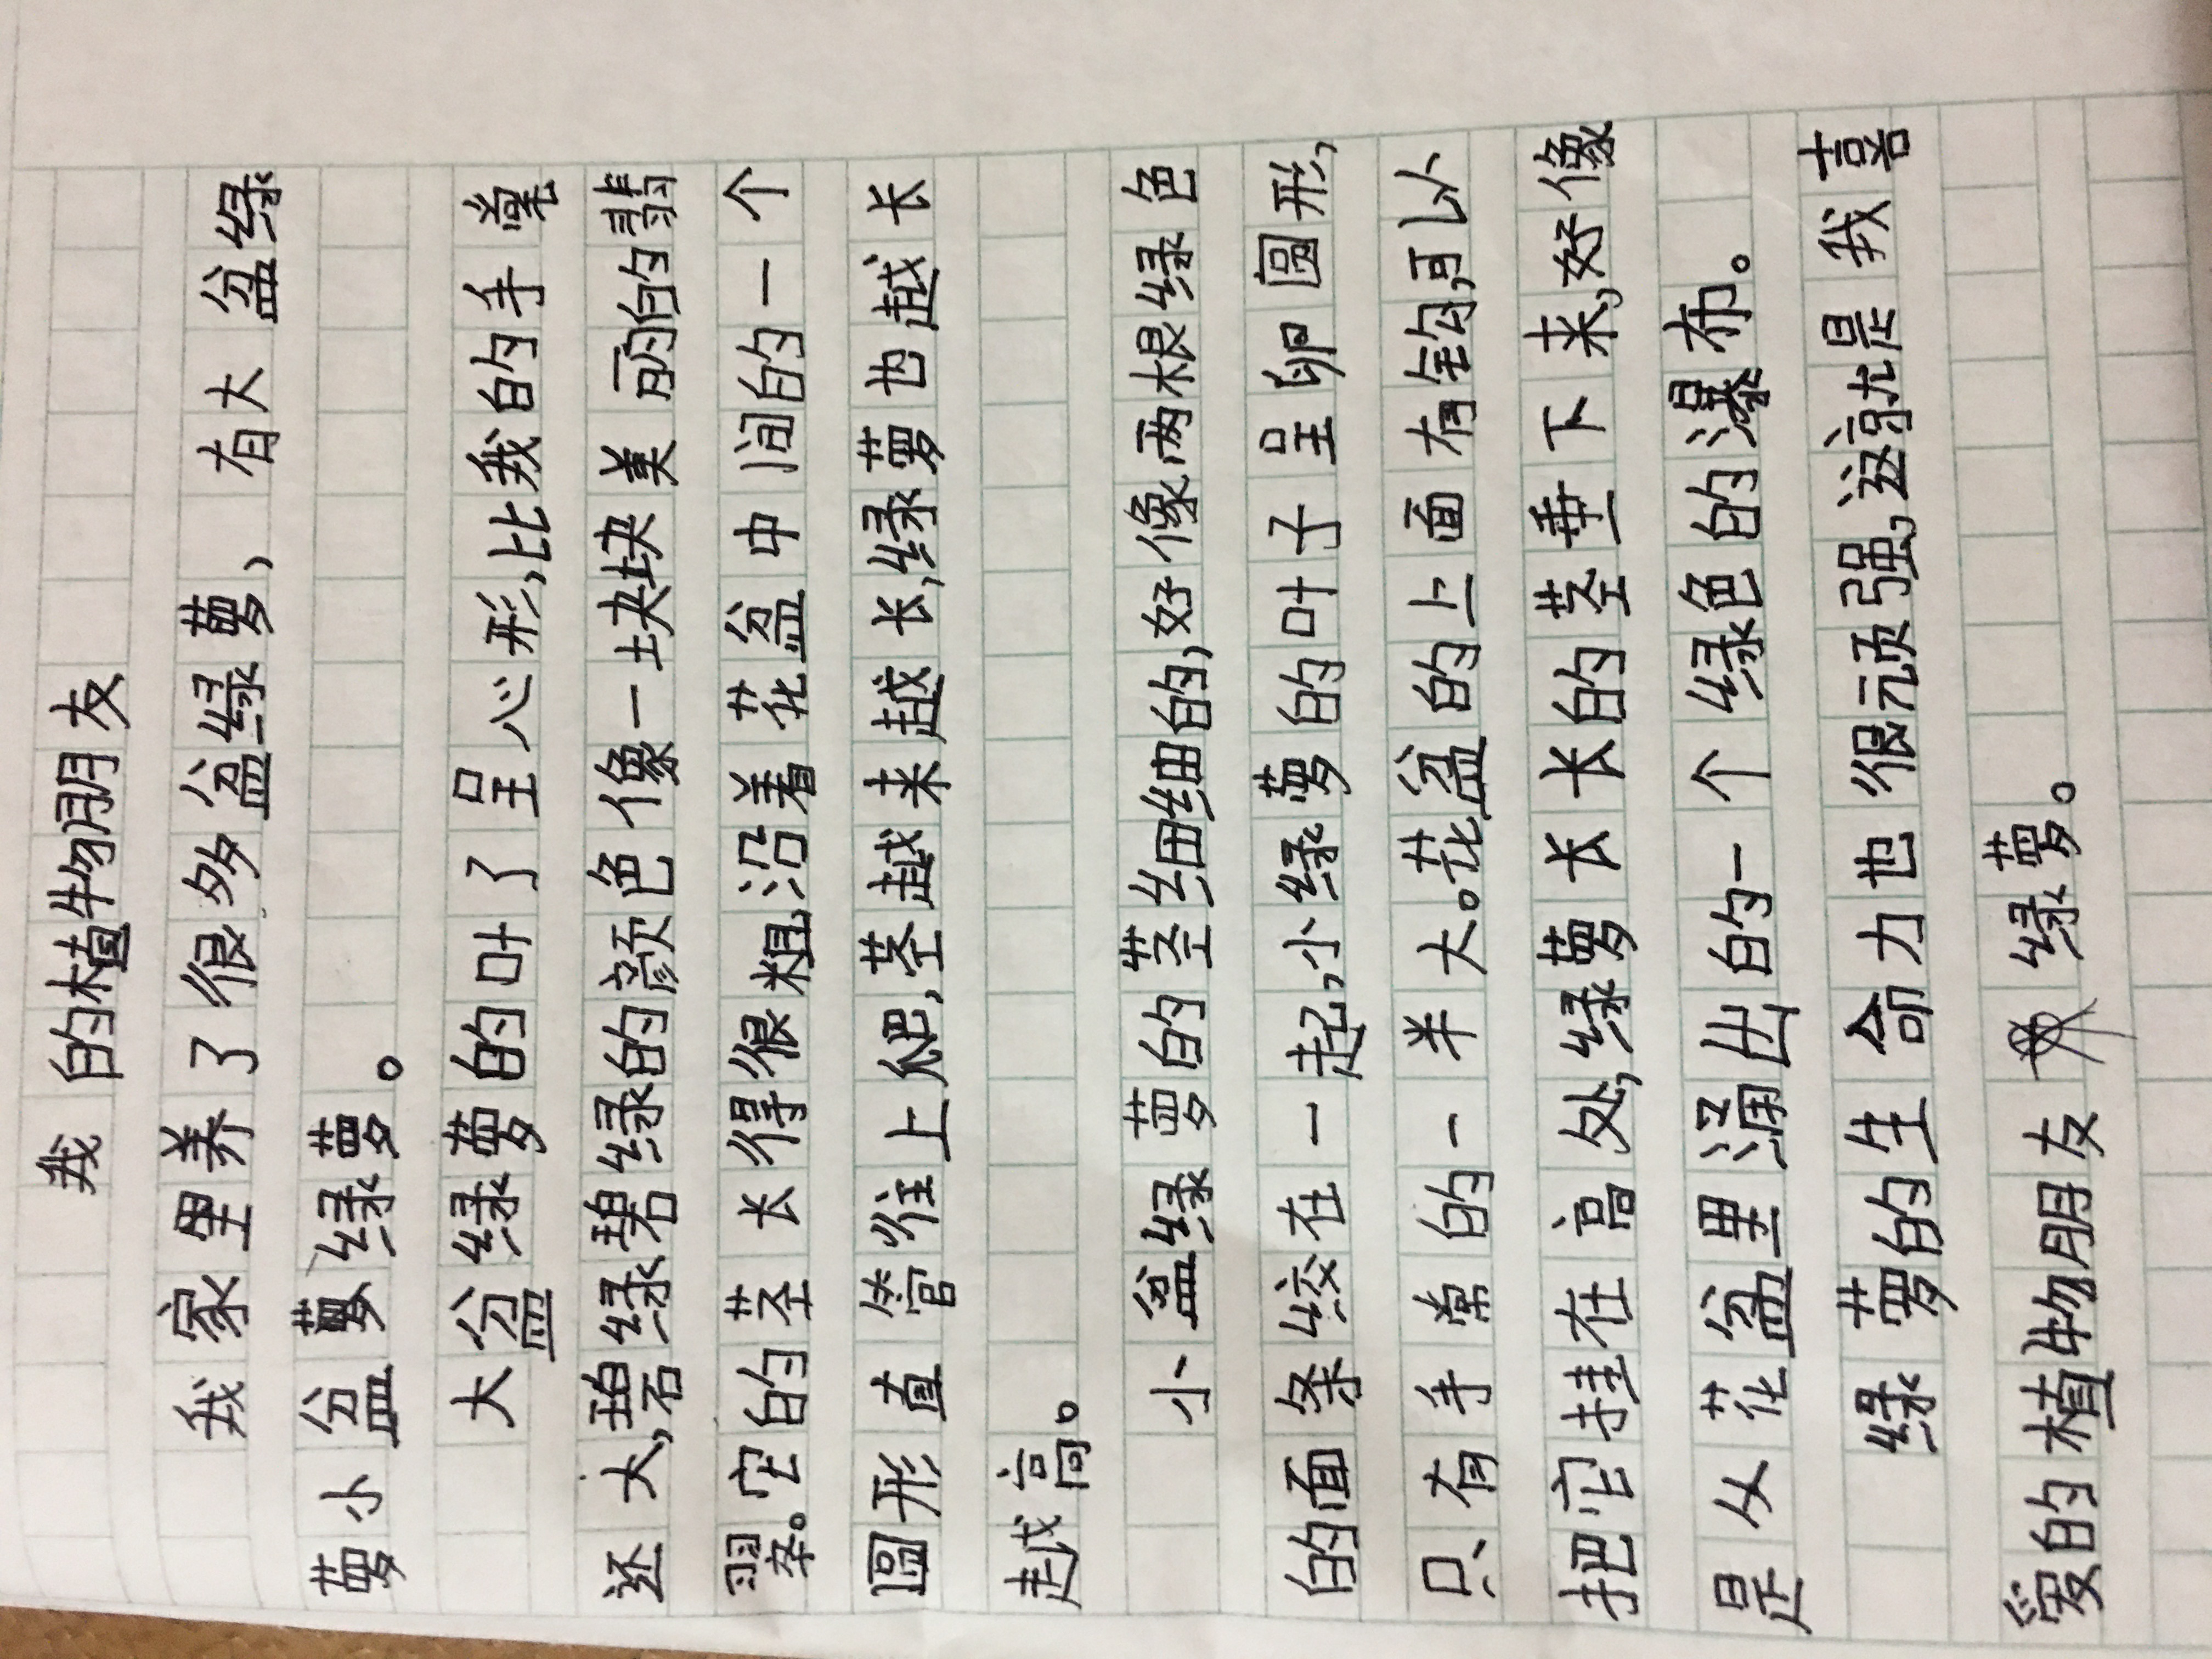 我的植物朋友
我家里养了很多盆绿萝，有大盆绿
萝小盆绿萝。
大盆绿萝的叶了呈心形，比我的手掌
还大，碧绿碧绿的颜色像一块块美丽的翡
翠。它的茎长得很粗，沿着花盆中间的一个
圆形直管往上爬，茎越来越长，绿萝也越长
越高。
小盆绿萝的茎细细的，好像两根绿色
的面条绞在一起，小绿萝的叶子呈卵圆形，
只有手掌的一半大。花盆的上面有钩，可以
把它挂在高处，绿萝长长的茎垂下来，好像
是从花盆里涌出的一个绿色的瀑布。
绿萝的生命力也很顽强，这就是我喜
爱的植物朋友绿萝。